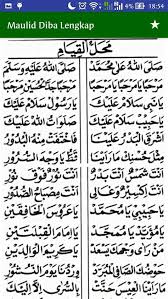 18:54
Maulid Diba Lengkap
محل القيام
صَلَّى اللهُ عَلَى مُحَمَّدْ صَلَّى اللهُ عَلَيْهِ وَسَلَّمْ
مَرْحَبًا يَا مَرْحَبًا يَا مَرْحَبًا مَرْحَبًا جَدَّ الْحُسَيْنِ مَرْحَبًا
يَا نَبِي سَلَامْ عَلَيْكَ يَا رَسُولْ سَلَامْ عَلَيْكَ
يَا حَبِيبْ سَلَامْ عَلَيْكَ صَلَوَاتُ اللهْ عَلَيْكَ
أَشْرَقَ الْبَدْرُ عَلَيْنَا فَاخْتَفَتْ مِنْهُ الْبُدُورُ
مِثْلَ حُسْنِكْ مَا رَأَيْنَا قَطُّ يَا وَجْهَ السُّرُورِ
أَنْتَ شَمْسٌ أَنْتَ بَدْرٌ أَنْتَ نُورٌ فَوْقَ نُورِ
أَنْتَ إِكْسِيرٌ وَغَالِي أَنْتَ مِصْبَاحُ الصُّدُورِ
يَا حَبِيبِي يَا مُحَمَّدْ يَا عَرُوسَ الْخَافِقَيْنِ
يَا مُؤَيَّدْ يَا مُمَجَّدْ يَا إِمَامَ الْقِبْلَتَيْنِ
مَنْ رَأَى وَجْهَكَ يَسْعَدْ يَا كَرِيمَ الْوَالِدَيْنِ
حَوْضُكَ الصَّافِي الْمُبَرَّدْ وِرْدُنَا يَوْمَ النُّشُورِ